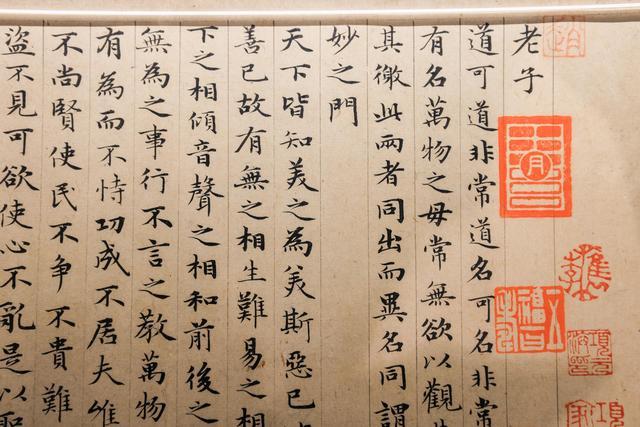 老子
道可道非常道名可名非常
有名萬物之母常無欲以觀其
其徼此兩者同出而異名同謂
妙之門
天下皆知美之為美斯惡已
善已故有無之相生難易之相
下之相傾音聲之相和前後之
無為之事行不言之教萬物
有為而不恃功成不居夫惟
不尚賢使民不争不貴難
盜不見可欲使心不亂是以聖